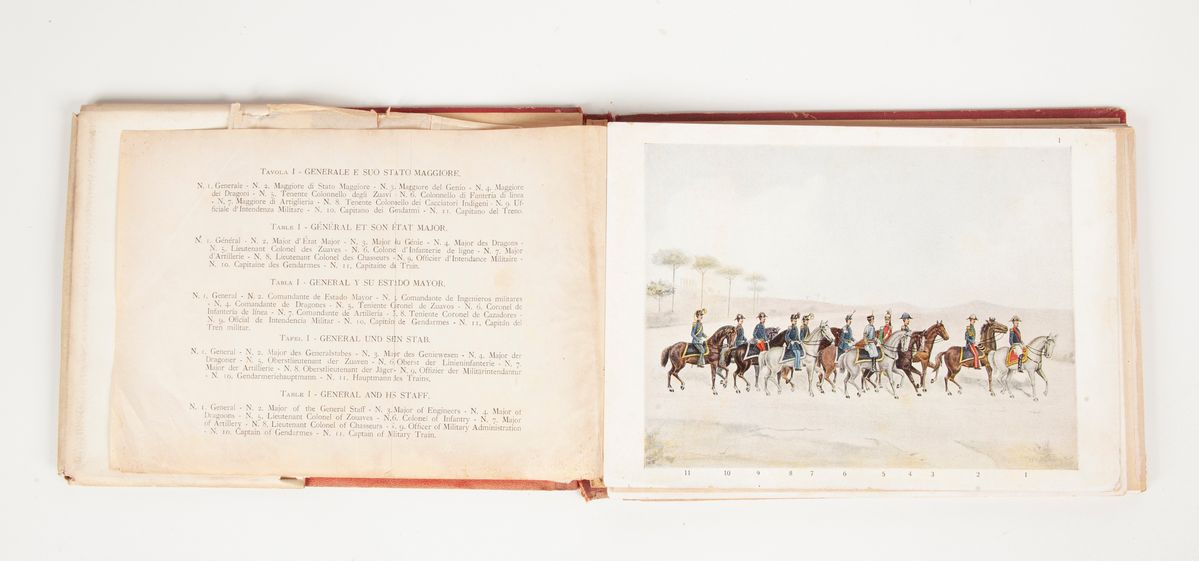 Tavola I - GENERALE E SUO STATO MAGGIORE.
N. 1. Generale - N. 2. Maggiore di Stato Maggiore - N. 3. Maggiore del Genio - N. 4. Maggiore
dei Dragoni - N. 5. Tenente Colonnello degli Zuavi - N. 6. Colonnello di Fanteria di linea
- N. 7. Maggiore di Artiglieria - N. 8. Tenente Colonnello dei Cacciatori Indigeni - N. 9. Uf-
ficiale d'Intendenza Militare - N. 10. Capitano dei Gendarmi - N. 11. Capitano del Treno.
Table I - GÉNÉRAL ET SON ÉTAT MAJOR.
N. 1. Général - N. 2. Major d'État Major - N. 3. Major du Génie - N. 4. Major des Dragons -
N. 5. Lieutenant Colonel des Zuaves - N. 6. Colonel d'Infanterie de ligne - N. 7. Major
d'Artillerie - N. 8. Lieutenant Colonel des Chasseurs - N. 9. Officier d'Intendance Militaire -
N. 10. Capitaine des Gendarmes - N. 11. Capitaine di Train.
Tabla I - GENERAL Y SU ESTADO MAYOR.
N. 1. General - N. 2. Comandante de Estado Mayor - N. 3 Comandante de Ingenieros militares
- N. 4. Comandante de Dragones - N. 5. Teniente Coronel de Zuavos - N. 6. Coronel de
Infanterìa de lìnea - N. 7. Comandante de Artillerìa - N. 8. Teniente Coronel de Cazadores -
N. 9. Oficial de Intendencia Militar - N. 10. Capitán de Gendarmes - N. 11. Capitán del
Tren militar.
Tafel I - GENERAL UND SEIN STAB.
N. 1. General - N. 2. Major des Generalstabes - N. 3. Major des Geniewesen - N. 4. Major der
Dragoner - N. 5. Oberstlieutenant der Zuaven - N. 6 Oberst der Linieninfanterie - N. 7.
Major der Artillerie - N. 8. Oberstlieutenant der Jäger - N. 9. Offizier der Militärintendantur
- N. 10. Gendarmeriehauptmann - N. 11. Hauptmann des Trains.
Table I - GENERAL AND HS STAFF.
N. 1. General - N. 2. Major of the General Staff - N. 3. Major of Engineers - N. 4. Major of
Dragoons - N. 5. Lieutenant Colonel of Zouaves - N. 6. Colonel of Infantry - N. 7. Major
of Artillery - N. 8. Lieutenant Colonel of Chasseurs - N. 9. Officer of Military Administration
- N. 10. Captain of Gendarmes - N. 11. Captain of Military Train.
1
11 10 9 8 7 6 5 4 3 2 1